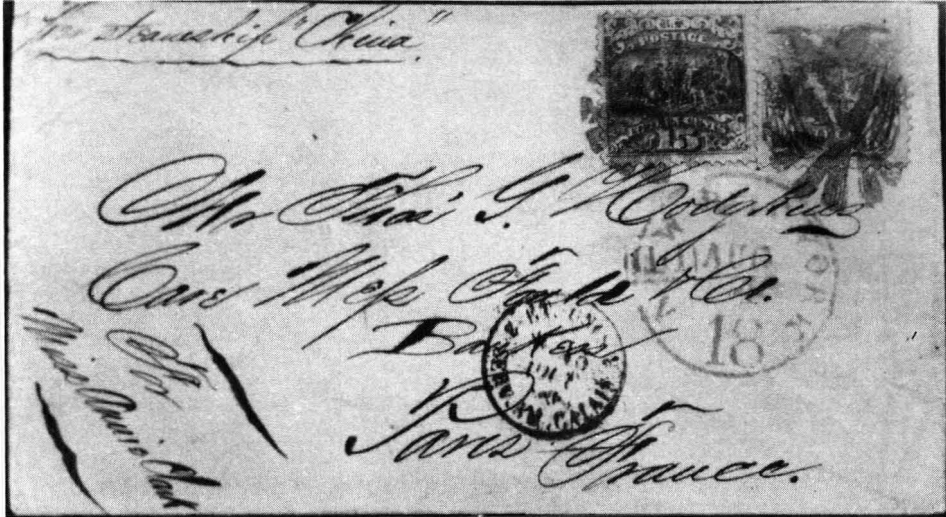 Per steamship "China"
U.S. POSTAGE
FIFTEEN CENTS
15
Mr Thos G. Hodgkins
Care Mess Foulds & Co.
Bankers
Paris France.
For
Miss Annie Clark
NEW YORK
18
CALAIS